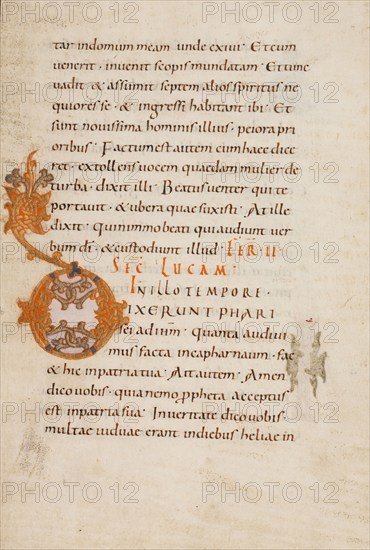 tar indomum meam unde exivi · Et cum
venerit · invenit scopis mundatam · Et tunc
vadit & assumit septem alios spiritus ne
quiores se · & ingressi habitant ibi · Et
sunt novissima hominis illius · peiora pri
oribus · Factum est autem cum haec dice
ret · extollens vocem quaedam mulier de
turba · dixit illi · Beatus venter qui te
portavit · & ubera quae suxisti · At ille
dixit · Quinimmo beati qui audiunt ver
bum dī · & custodiunt illud · FER · II
SEC LUCAM ·
IN ILLO TEMPORE ·
DIXERUNT PHARI
sei ad ihm̄ · Quanta audivi
mus facta in capharnaum · fac
& hic in patria tua · Ait autem · Amen
dico vobis · quia nemo propheta acceptus
est in patria sua · In veritate dico vobis ·
multae viduae erant in diebus heliae in
PHOTO 12